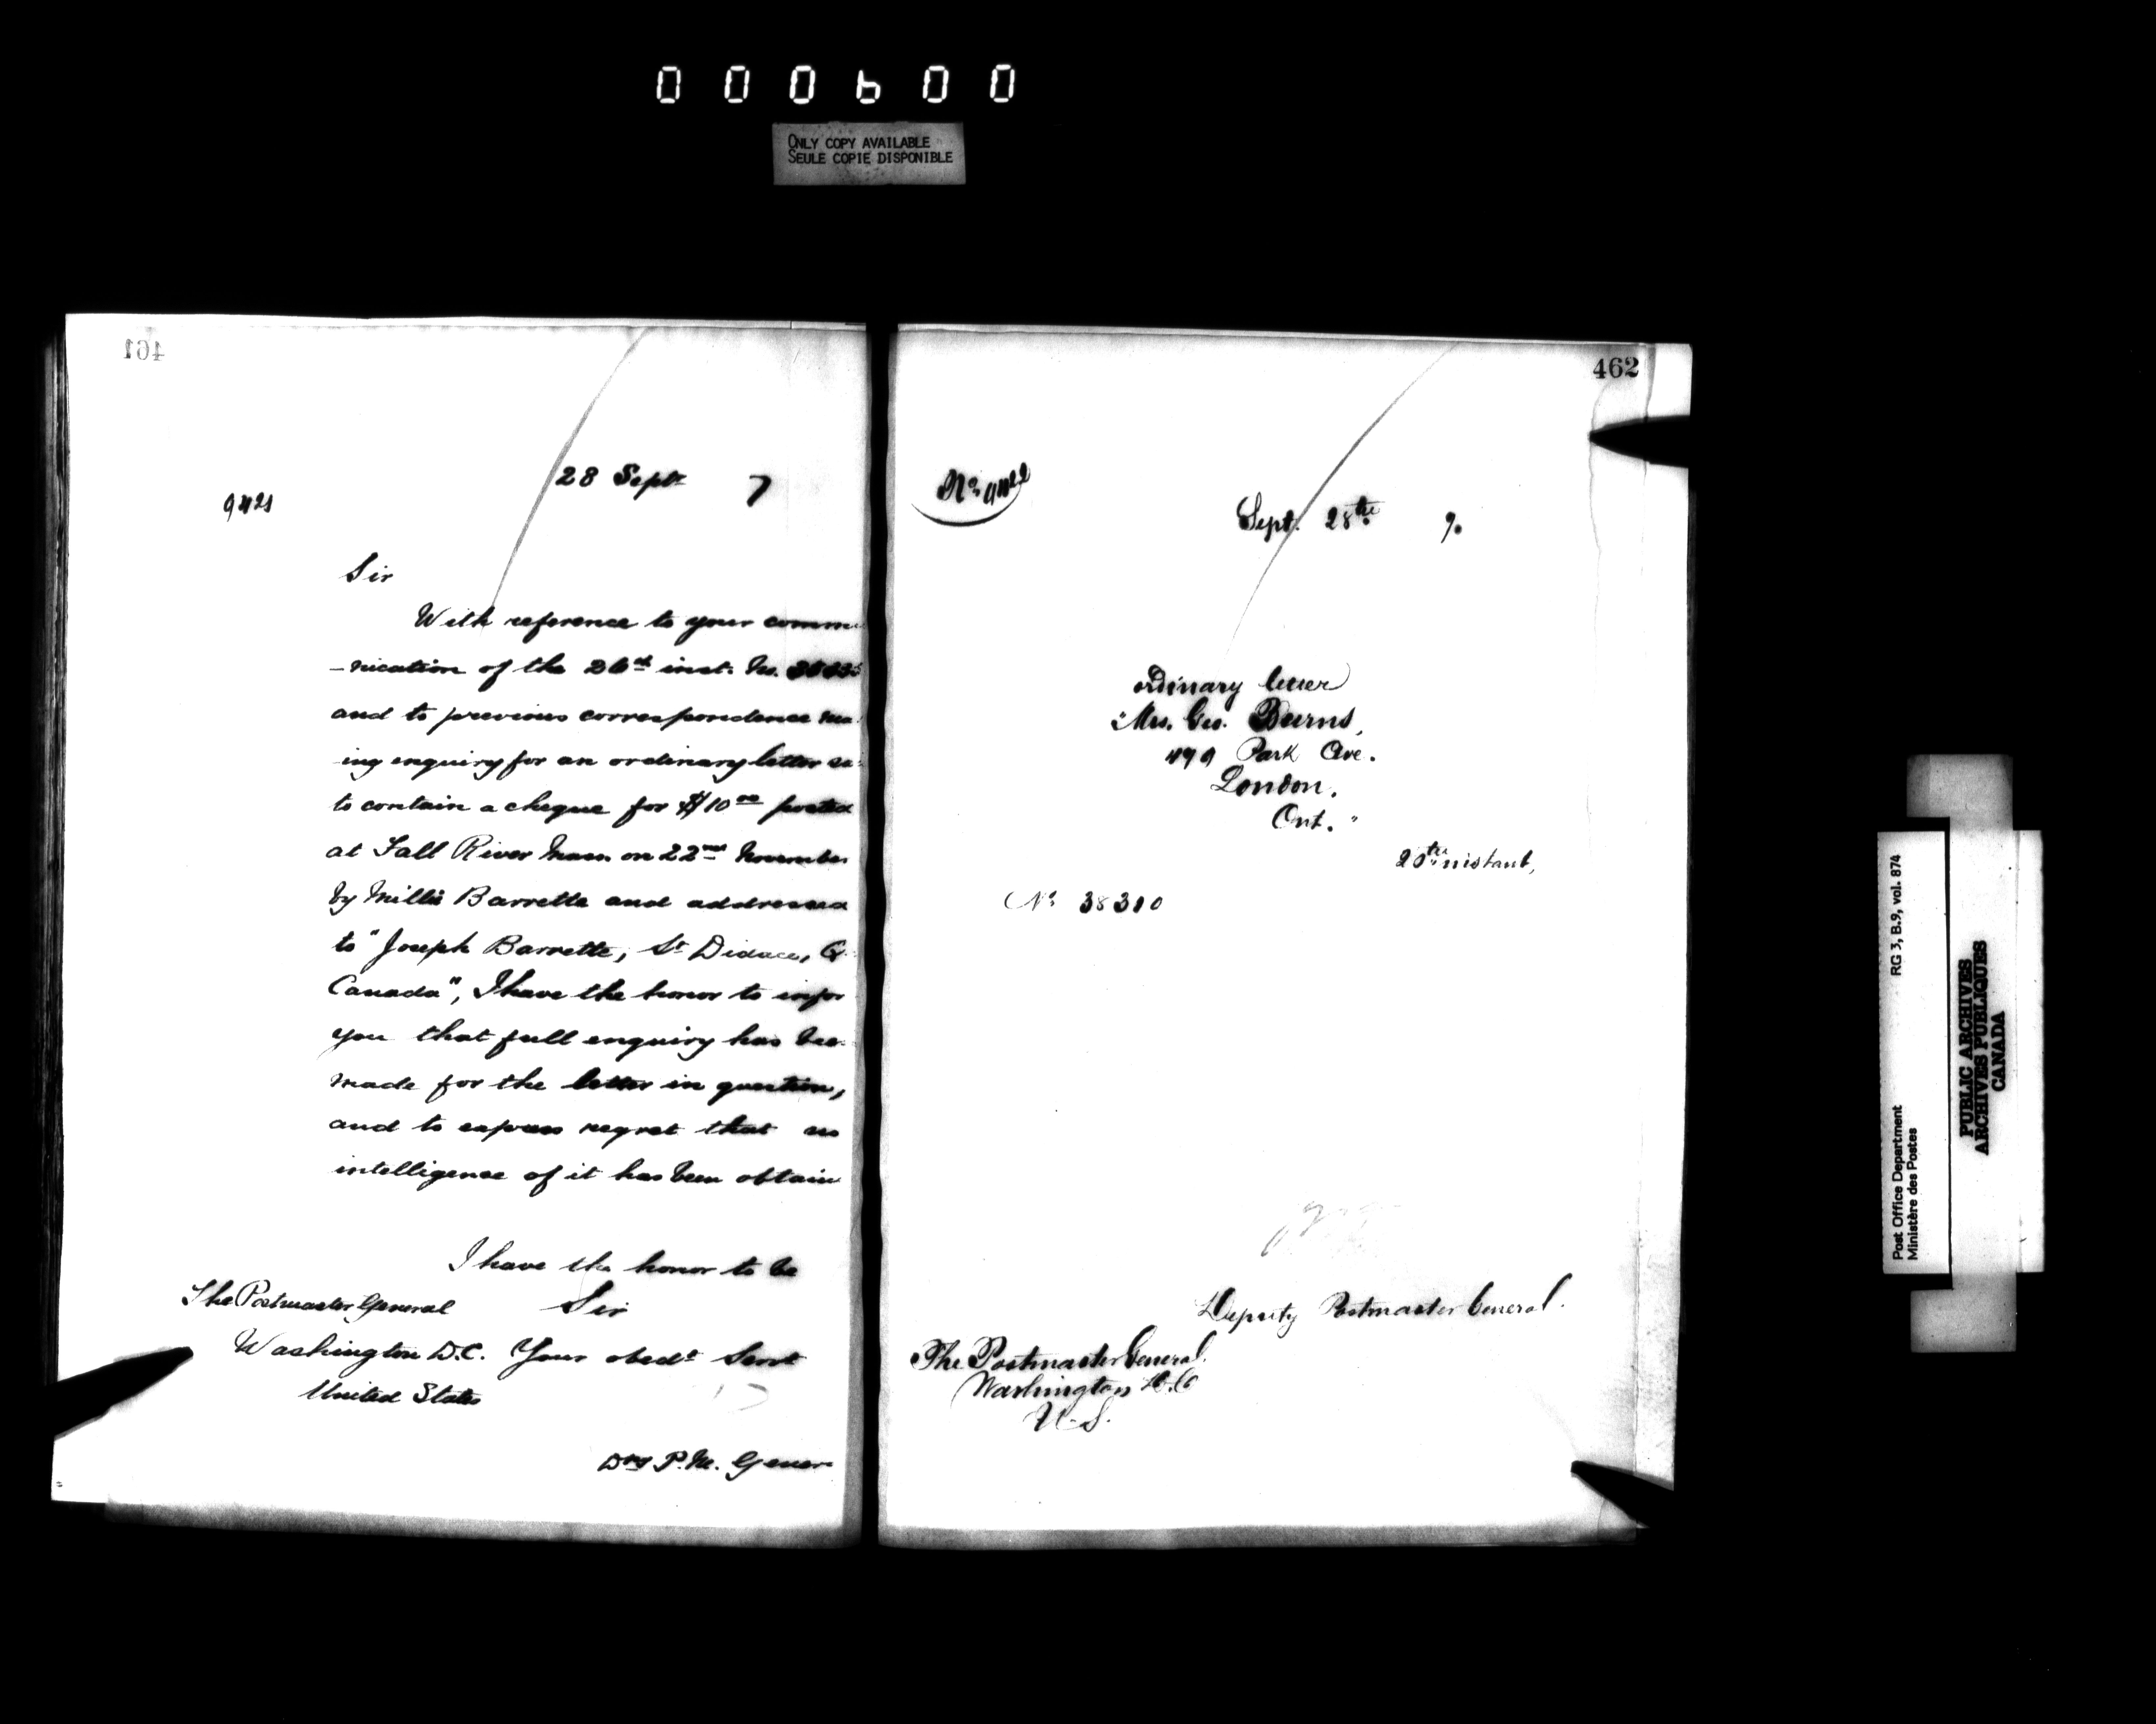 000600
ONLY COPY AVAILABLE
SEULE COPIE DISPONIBLE
461
28 Sept 7
9421
Sir
With reference to your commu
-nication of the 26th inst. No.
and to previous correspondence ma
ing enquiry for an ordinary letter sa
to contain a cheque for $10.00 posted
at Fall River Mass. on 22nd November
by Millie Barrette and addressed
to "Joseph Barrette, St Didace, Q
Canada", I have the honor to infor
you that full enquiry has bee
made for the letter in question,
and to express regret that no
intelligence of it has been obtain
I have the honor to be
The Postmaster General Sir
Washington D.C. Your obedt Servt
United States
Dty P.M. Gener
462
No. 9422
Sept. 28th 7.
ordinary letter
"Mrs. Geo. Burns,
479 Park Ave.
London.
Ont."
instant,
No 38310
Deputy Postmaster General.
The Postmaster General.
Washington D.C
U.S.
Post Office Department
Ministère des Postes
RG 3, B.9, vol. 874
PUBLIC ARCHIVES
ARCHIVES PUBLIQUES
CANADA